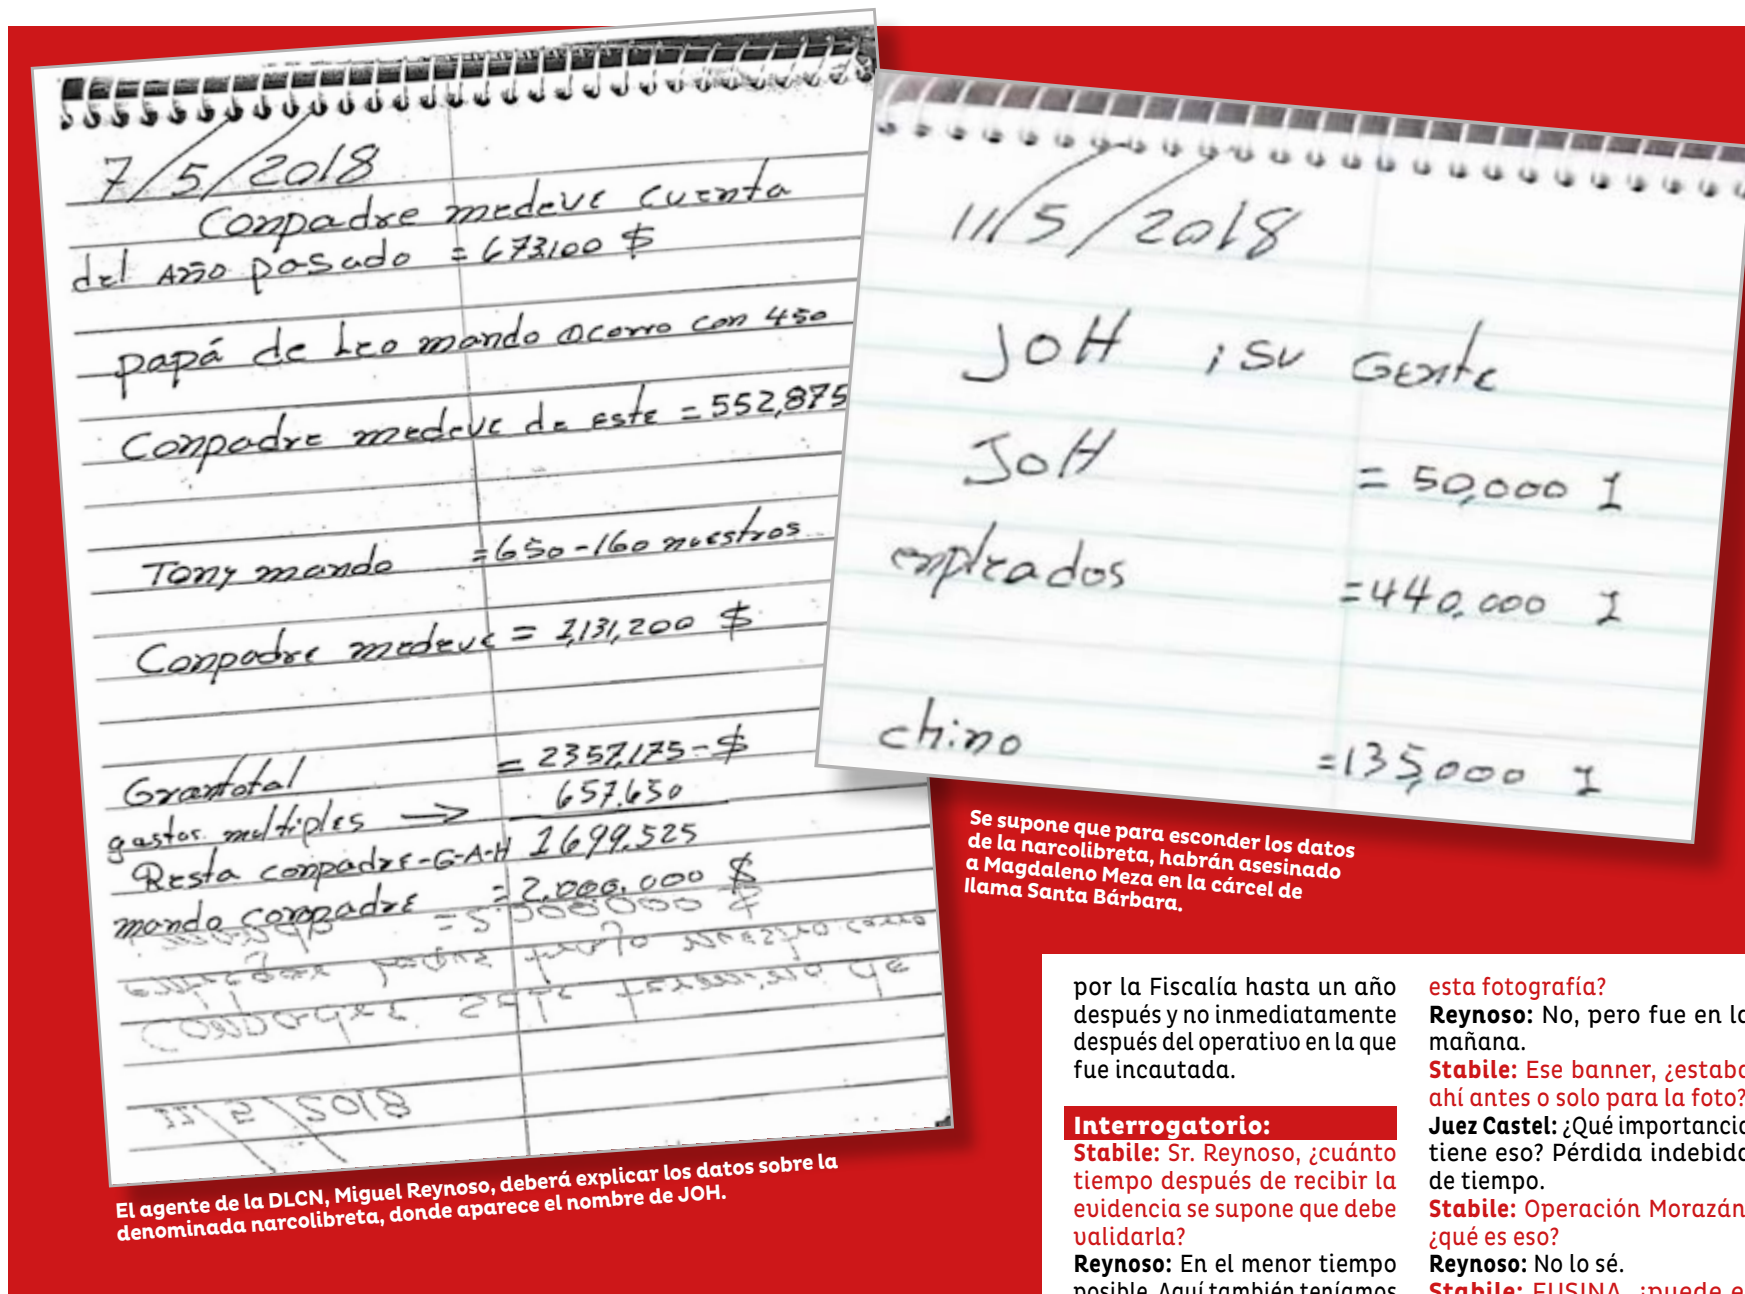 7/5/2018
Conpadre medeve cuenta
del Año pasado = 673,100 $
papá de Leo mando Ocorro con 450
Conpadre medeve de este = 552,875
Tony mando = 650-160 nuestros
Conpadre medeve = 1,131,200 $
Grantotal = 2357,175-$
gastos multiples → 657.650
Resta conpadre-G-A-H 1699,525
mando conpadre = 2.000.000 $
11/5/2018
11/5/2018
JOH i SU Gente
JOH = 50,000 I
empleados = 440,000 I
chino = 135,000 I
El agente de la DLCN, Miguel Reynoso, deberá explicar los datos sobre la
denominada narcolibreta, donde aparece el nombre de JOH.
Se supone que para esconder los datos
de la narcolibreta, habrán asesinado
a Magdaleno Meza en la cárcel de
Ilama Santa Bárbara.
por la Fiscalía hasta un año
después y no inmediatamente
después del operativo en la que
fue incautada.
Interrogatorio:
Stabile: Sr. Reynoso, ¿cuánto
tiempo después de recibir la
evidencia se supone que debe
validarla?
Reynoso: En el menor tiempo
posible. Aquí también teníamos
esta fotografía?
Reynoso: No, pero fue en la
mañana.
Stabile: Ese banner, ¿estaba
ahí antes o solo para la foto?
Juez Castel: ¿Qué importancia
tiene eso? Pérdida indebida
de tiempo.
Stabile: Operación Morazán
¿qué es eso?
Reynoso: No lo sé.
Stabile: FUSINA, ¿puede